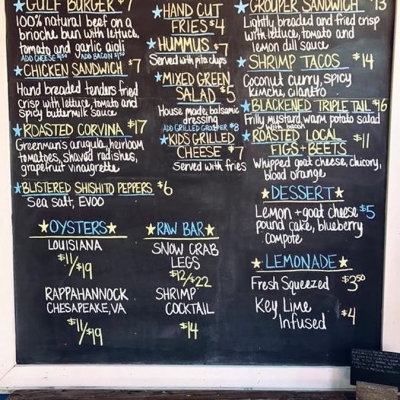 GULF BURGER $7
100% natural beef on a
brioche bun with lettuce,
tomato and garlic aioli
ADD CHEESE ADD BACON
CHICKEN SANDWICH $7
Hand breaded tenders fried
crisp with lettuce, tomato and
spicy buttermilk sauce
ROASTED CORVINA $17
Greenman's arugula, heirloom
tomatoes, shaved radishes,
grapefruit vinaigrette
BLISTERED SHISHITO PEPPERS $6
Sea Salt, EVOO
OYSTERS
LOUISIANA
$11/$19
RAPPAHANNOCK
CHESAPEAKE, VA
$11/$19
HAND CUT
FRIES $4
HUMMUS $7
Served with pita chips
MIXED GREEN
SALAD $5
House made, balsamic
dressing
ADD GRILLED GROUPER $8
KIDS GRILLED
CHEESE $7
Served with fries
RAW BAR
SNOW CRAB
LEGS
$12/$22
SHRIMP
COCKTAIL
$14
GROUPER SANDWICH $13
Lightly breaded and fried crisp
with lettuce, tomato and
lemon dill sauce
SHRIMP TACOS $14
Coconut curry, spicy
Kimchi, cilantro
BLACKENED TRIPLE TAIL $16
Frilly mustard warm potato salad
with bacon
ROASTED LOCAL
FIGS + BEETS $11
Whipped goat cheese, chicory,
blood orange
DESSERT
Lemon + goat cheese $5
pound cake, blueberry
compote
LEMONADE
Fresh Squeezed $3.50
Key Lime
Infused $4